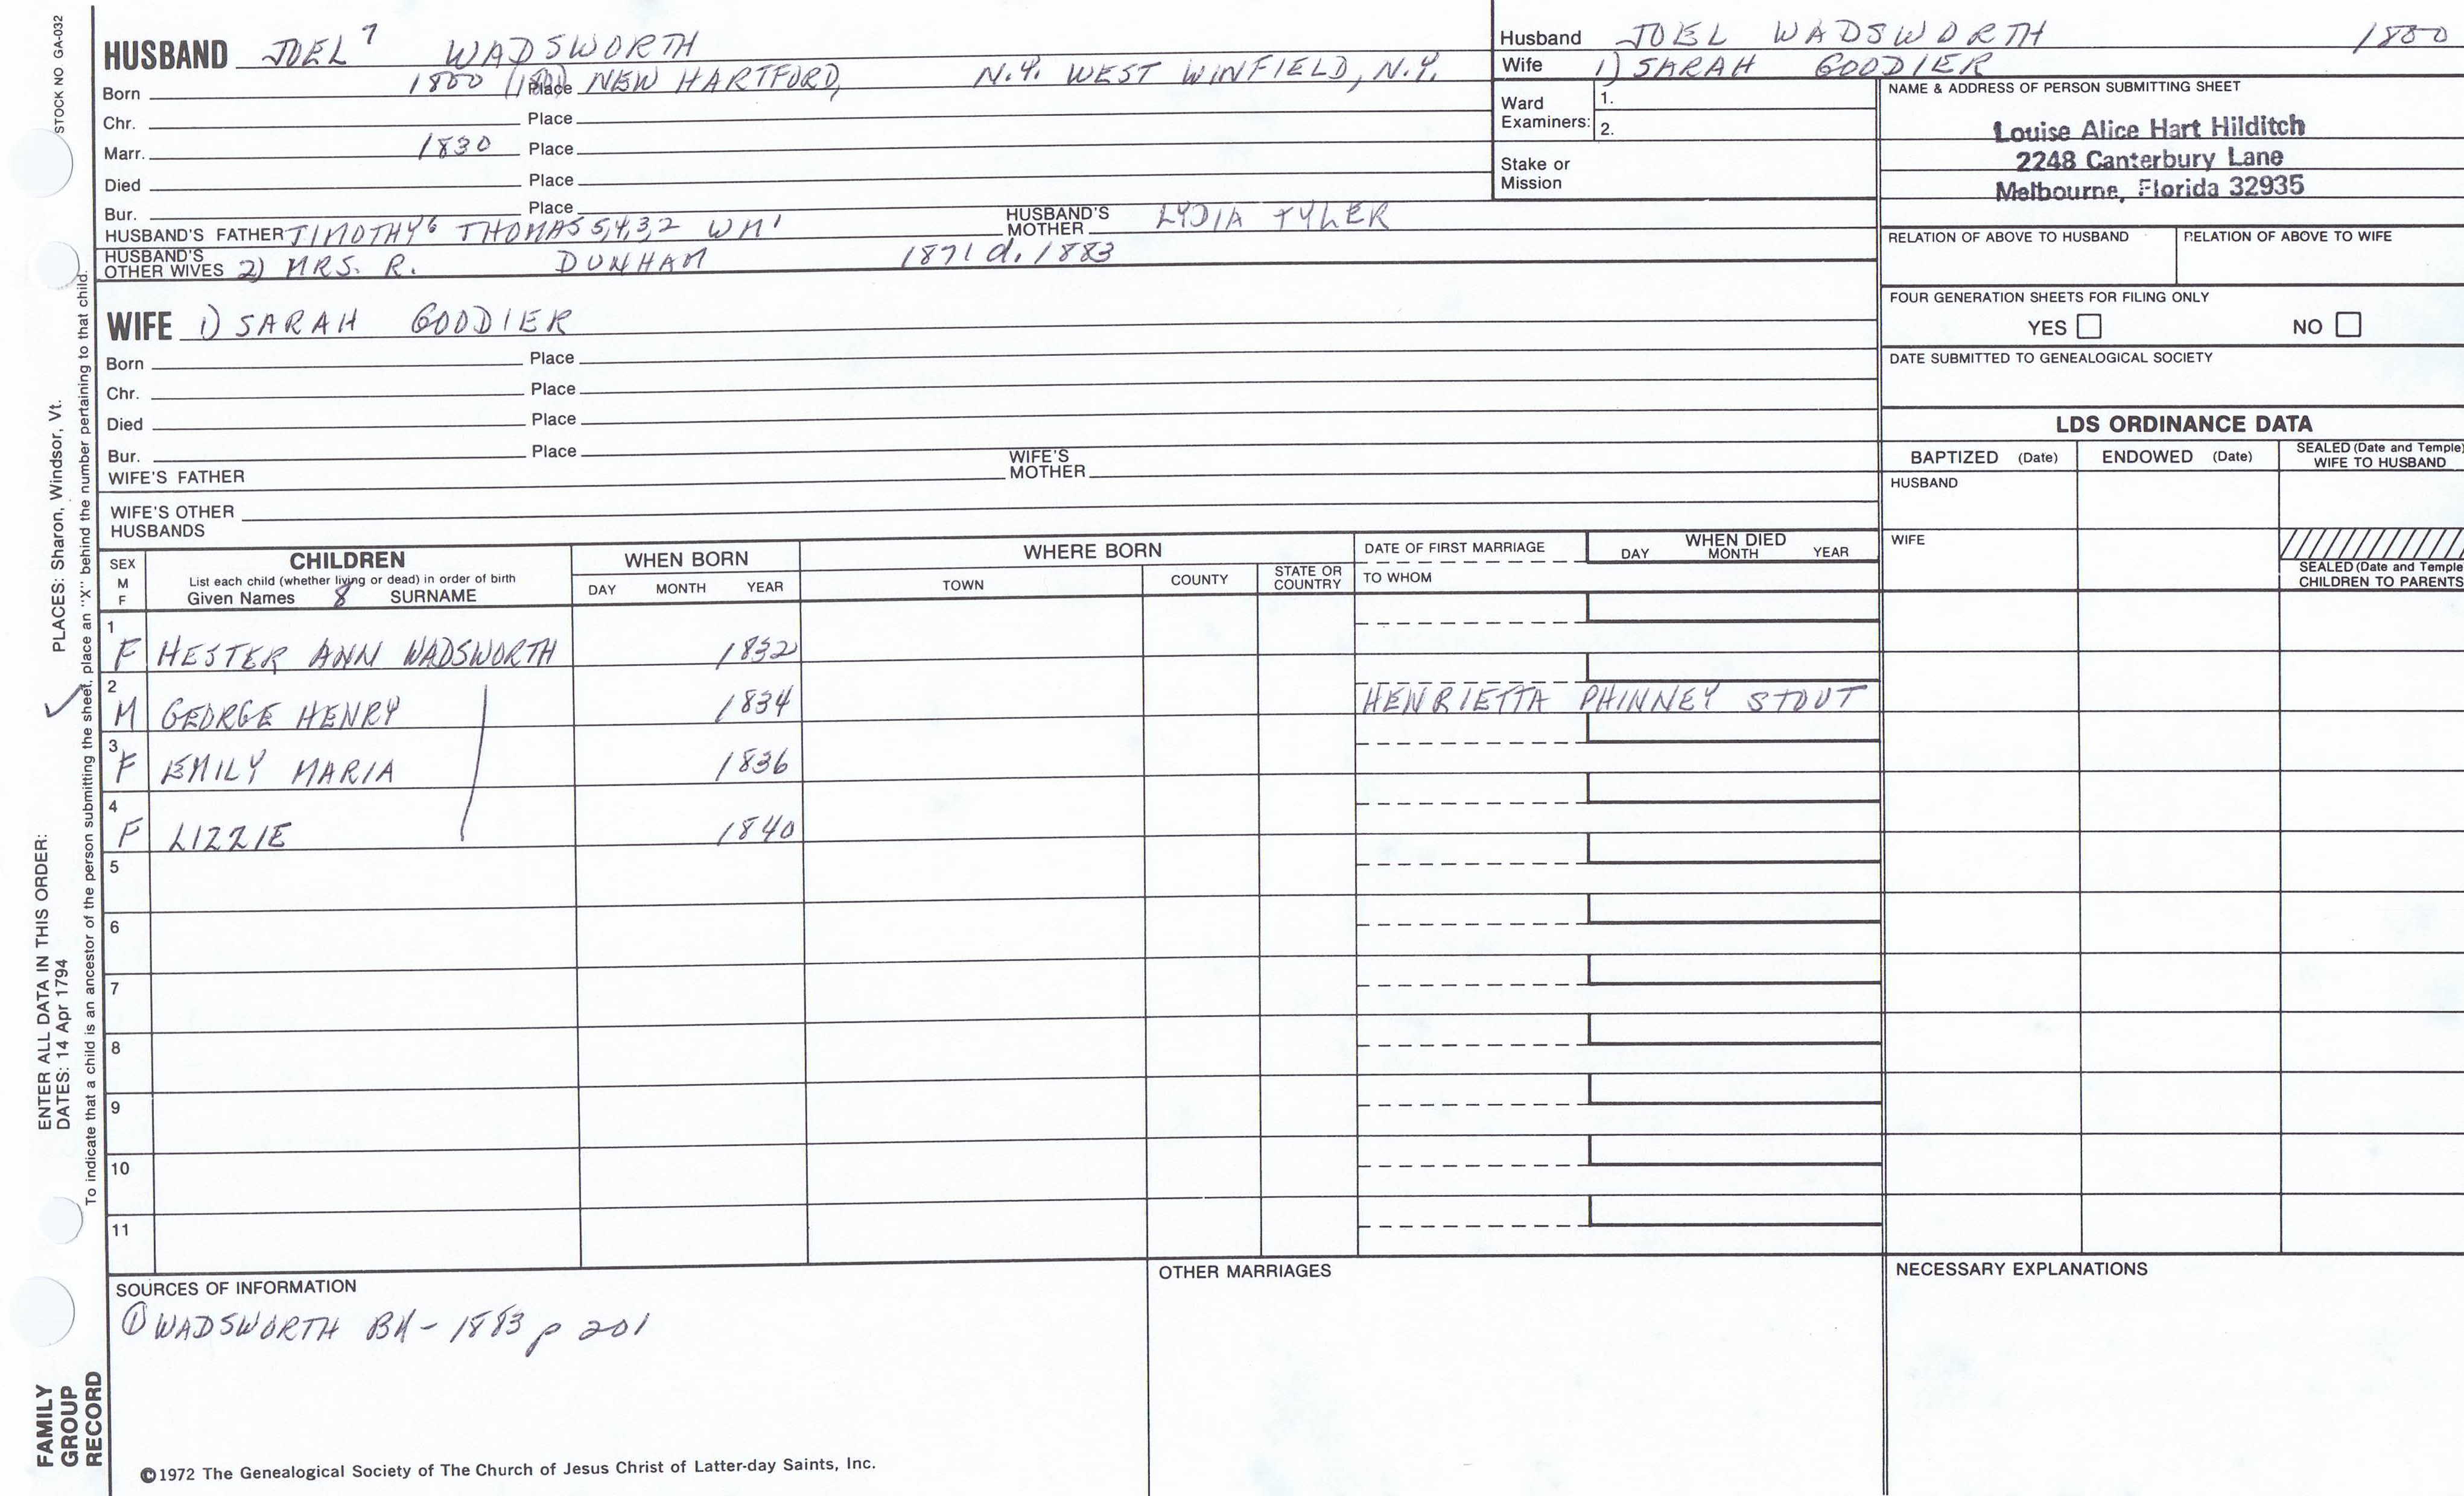 STOCK NO GA-032
PLACES: Sharon, Windsor, Vt.
ENTER ALL DATA IN THIS ORDER:
DATES: 14 Apr 1794
To indicate that a child is an ancestor of the person submitting the sheet, place an "X" behind the number pertaining to that child.
FAMILY
GROUP
RECORD
HUSBAND JOEL 7 WADSWORTH
Born 1800 Place NEW HARTFORD, N.Y. WEST WINFIELD, N.Y.
Chr. Place
Marr. 1830 Place
Died Place
Bur. Place
HUSBAND'S FATHER TIMOTHY 6 THOMAS 5,4,3,2 WM 1 HUSBAND'S MOTHER LYDIA TYLER
HUSBAND'S OTHER WIVES 2) MRS. R. DUNHAM 1871 d. 1883
WIFE 1) SARAH GOODIER
Born Place
Chr. Place
Died Place
Bur. Place
WIFE'S FATHER WIFE'S MOTHER
WIFE'S OTHER
HUSBANDS
Husband JOEL WADSWORTH 1800
Wife 1) SARAH GOODIER
Ward
Examiners:
1.
2.
Stake or
Mission
NAME & ADDRESS OF PERSON SUBMITTING SHEET
Louise Alice Hart Hilditch
2248 Canterbury Lane
Melbourne, Florida 32935
RELATION OF ABOVE TO HUSBAND RELATION OF ABOVE TO WIFE
FOUR GENERATION SHEETS FOR FILING ONLY
YES NO
DATE SUBMITTED TO GENEALOGICAL SOCIETY
LDS ORDINANCE DATA
BAPTIZED (Date) ENDOWED (Date) SEALED (Date and Temple)
WIFE TO HUSBAND
HUSBAND
WIFE
SEALED (Date and Temple
CHILDREN TO PARENTS
SEX
M
F
CHILDREN
List each child (whether living or dead) in order of birth
Given Names 8 SURNAME
WHEN BORN
DAY MONTH YEAR
WHERE BORN
TOWN COUNTY STATE OR COUNTRY
DATE OF FIRST MARRIAGE
TO WHOM
WHEN DIED
DAY MONTH YEAR
1
F HESTER ANN WADSWORTH 1832
2
M GEORGE HENRY 1834 HENRIETTA PHINNEY STOUT
3
F EMILY MARIA 1836
4
F LIZZIE 1840
5
6
7
8
9
10
11
SOURCES OF INFORMATION
① WADSWORTH BK - 1883 p 201
OTHER MARRIAGES
NECESSARY EXPLANATIONS
©1972 The Genealogical Society of The Church of Jesus Christ of Latter-day Saints, Inc.